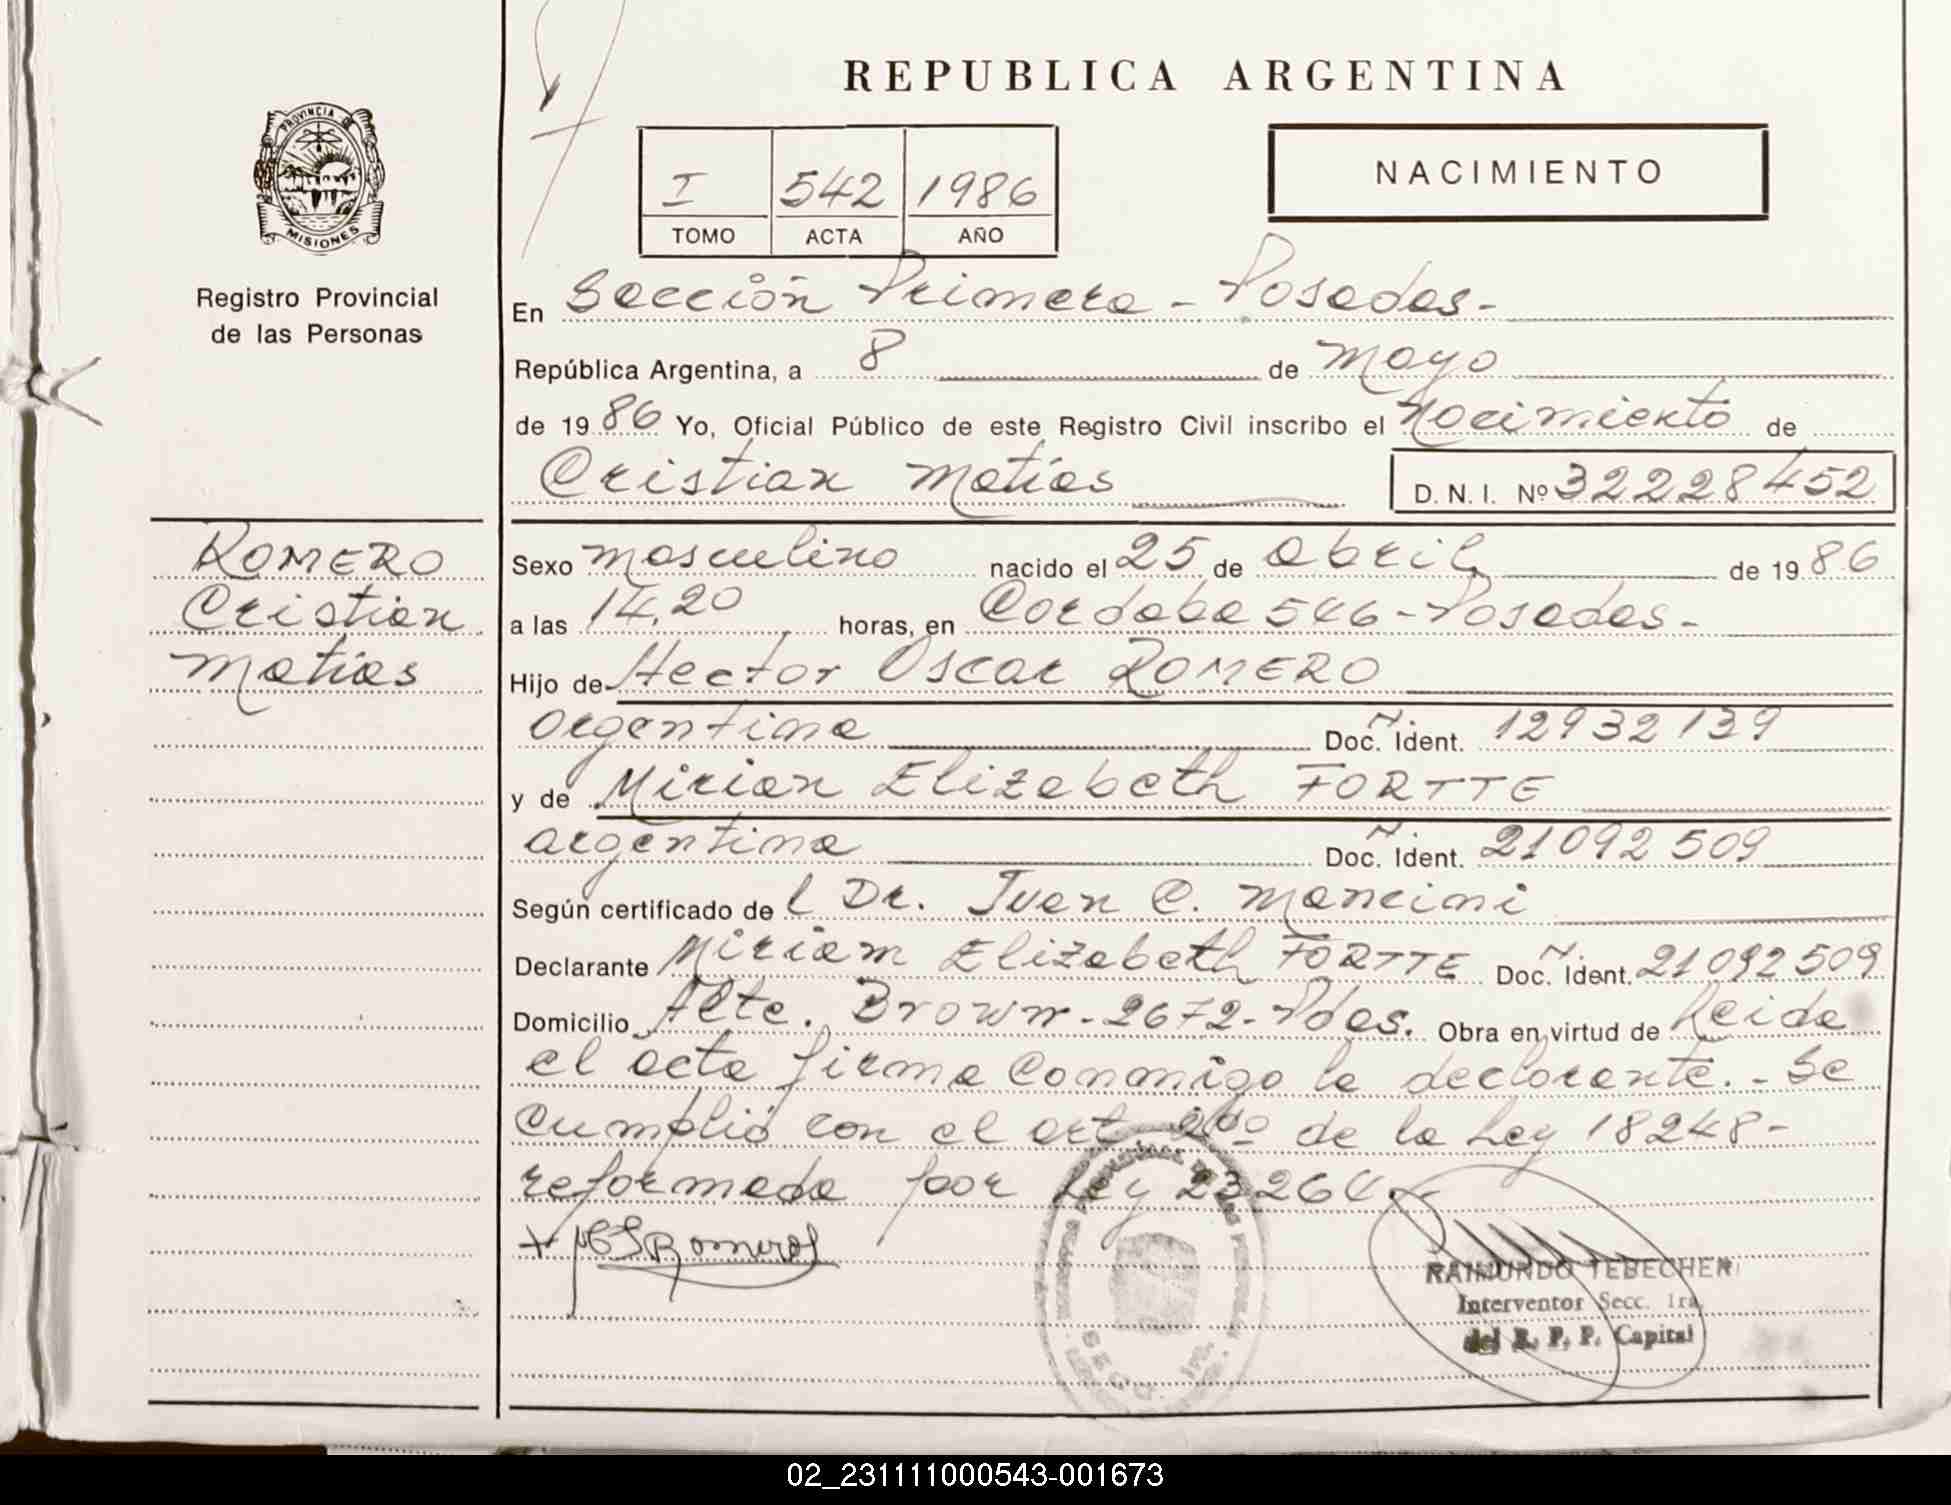 REPUBLICA ARGENTINA
PROVINCIA DE
MISIONES
Registro Provincial
de las Personas
I 542 1986
TOMO ACTA AÑO
NACIMIENTO
En Sección Primera - Posadas -
República Argentina, a 8 de Mayo
de 1986 Yo, Oficial Público de este Registro Civil inscribo el Nacimiento de
Cristian Matías D. N. I. Nº 32228452
ROMERO
Cristian
Matías
Sexo masculino nacido el 25 de abril de 1986
a las 14,20 horas, en Cordoba 546 - Posadas -
Hijo de Hector Oscar ROMERO
argentina Doc. Ident. 12932139
y de Mirian Elizabeth FORTTE
argentina Doc. Ident. 21092509
Según certificado de l Dr. Juan C. Mancini
Declarante Miriam Elizabeth FORTTE Doc. Ident. 21092509
Domicilio Alte. Brown - 2672 - Pdas. Obra en virtud de Leida
el acta firma conmigo la declarante. - Se
cumplió con el art. 2do de la Ley 18248 -
reformada por Ley 23264. -
Romero
RAIMUNDO TEBECHERI
Interventor Secc. 1ra.
del R. P. P. Capital
SECC. 1ra.
02_231111000543-001673